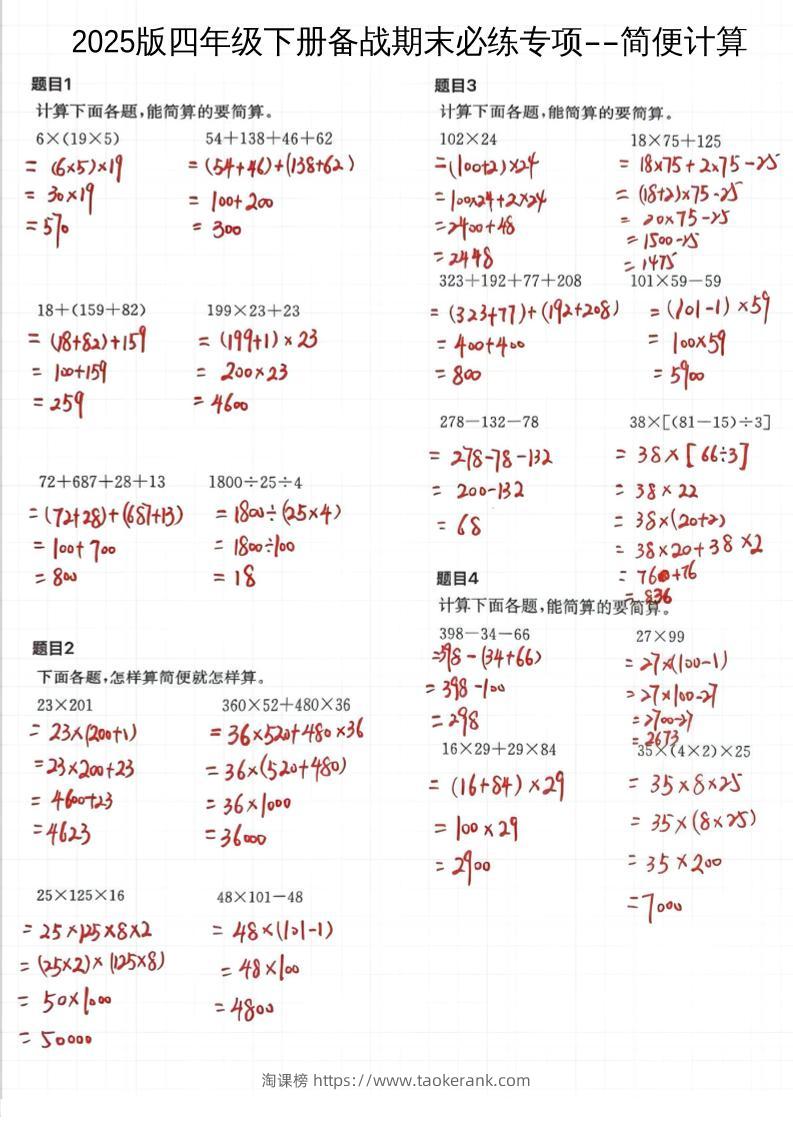 2025版四年级下册备战期末必练专项--简便计算
题目1
计算下面各题,能简算的要简算。
6×(19×5)
= (6×5)×19
= 30×19
= 570
54+138+46+62
= (54+46)+(138+62)
= 100+200
= 300
18+(159+82)
= (18+82)+159
= 100+159
= 259
199×23+23
= (199+1)×23
= 200×23
= 4600
72+687+28+13
= (72+28)+(687+13)
= 100+700
= 800
1800÷25÷4
= 1800÷(25×4)
= 1800÷100
= 18
题目2
下面各题,怎样算简便就怎样算。
23×201
= 23×(200+1)
= 23×200+23
= 4600+23
= 4623
360×52+480×36
= 36×520+480×36
= 36×(520+480)
= 36×1000
= 36000
25×125×16
= 25×125×8×2
= (25×2)×(125×8)
= 50×1000
= 50000
48×101-48
= 48×(101-1)
= 48×100
= 4800
题目3
计算下面各题,能简算的要简算。
102×24
= (100+2)×24
= 100×24+2×24
= 2400+48
= 2448
18×75+125
= 18×75+2×75-25
= (18+2)×75-25
= 20×75-25
= 1500-25
= 1475
323+192+77+208
= (323+77)+(192+208)
= 400+400
= 800
101×59-59
= (101-1)×59
= 100×59
= 5900
278-132-78
= 278-78-132
= 200-132
= 68
38×[(81-15)÷3]
= 38×[66÷3]
= 38×22
= 38×(20+2)
= 38×20+38×2
= 760+76
= 836
题目4
计算下面各题,能简算的要简算。
398-34-66
= 398-(34+66)
= 398-100
= 298
27×99
= 27×(100-1)
= 27×100-27
= 2700-27
= 2673
16×29+29×84
= (16+84)×29
= 100×29
= 2900
35×(4×2)×25
= 35×8×25
= 35×(8×25)
= 35×200
= 7000
淘课榜 https://www.taokerank.com